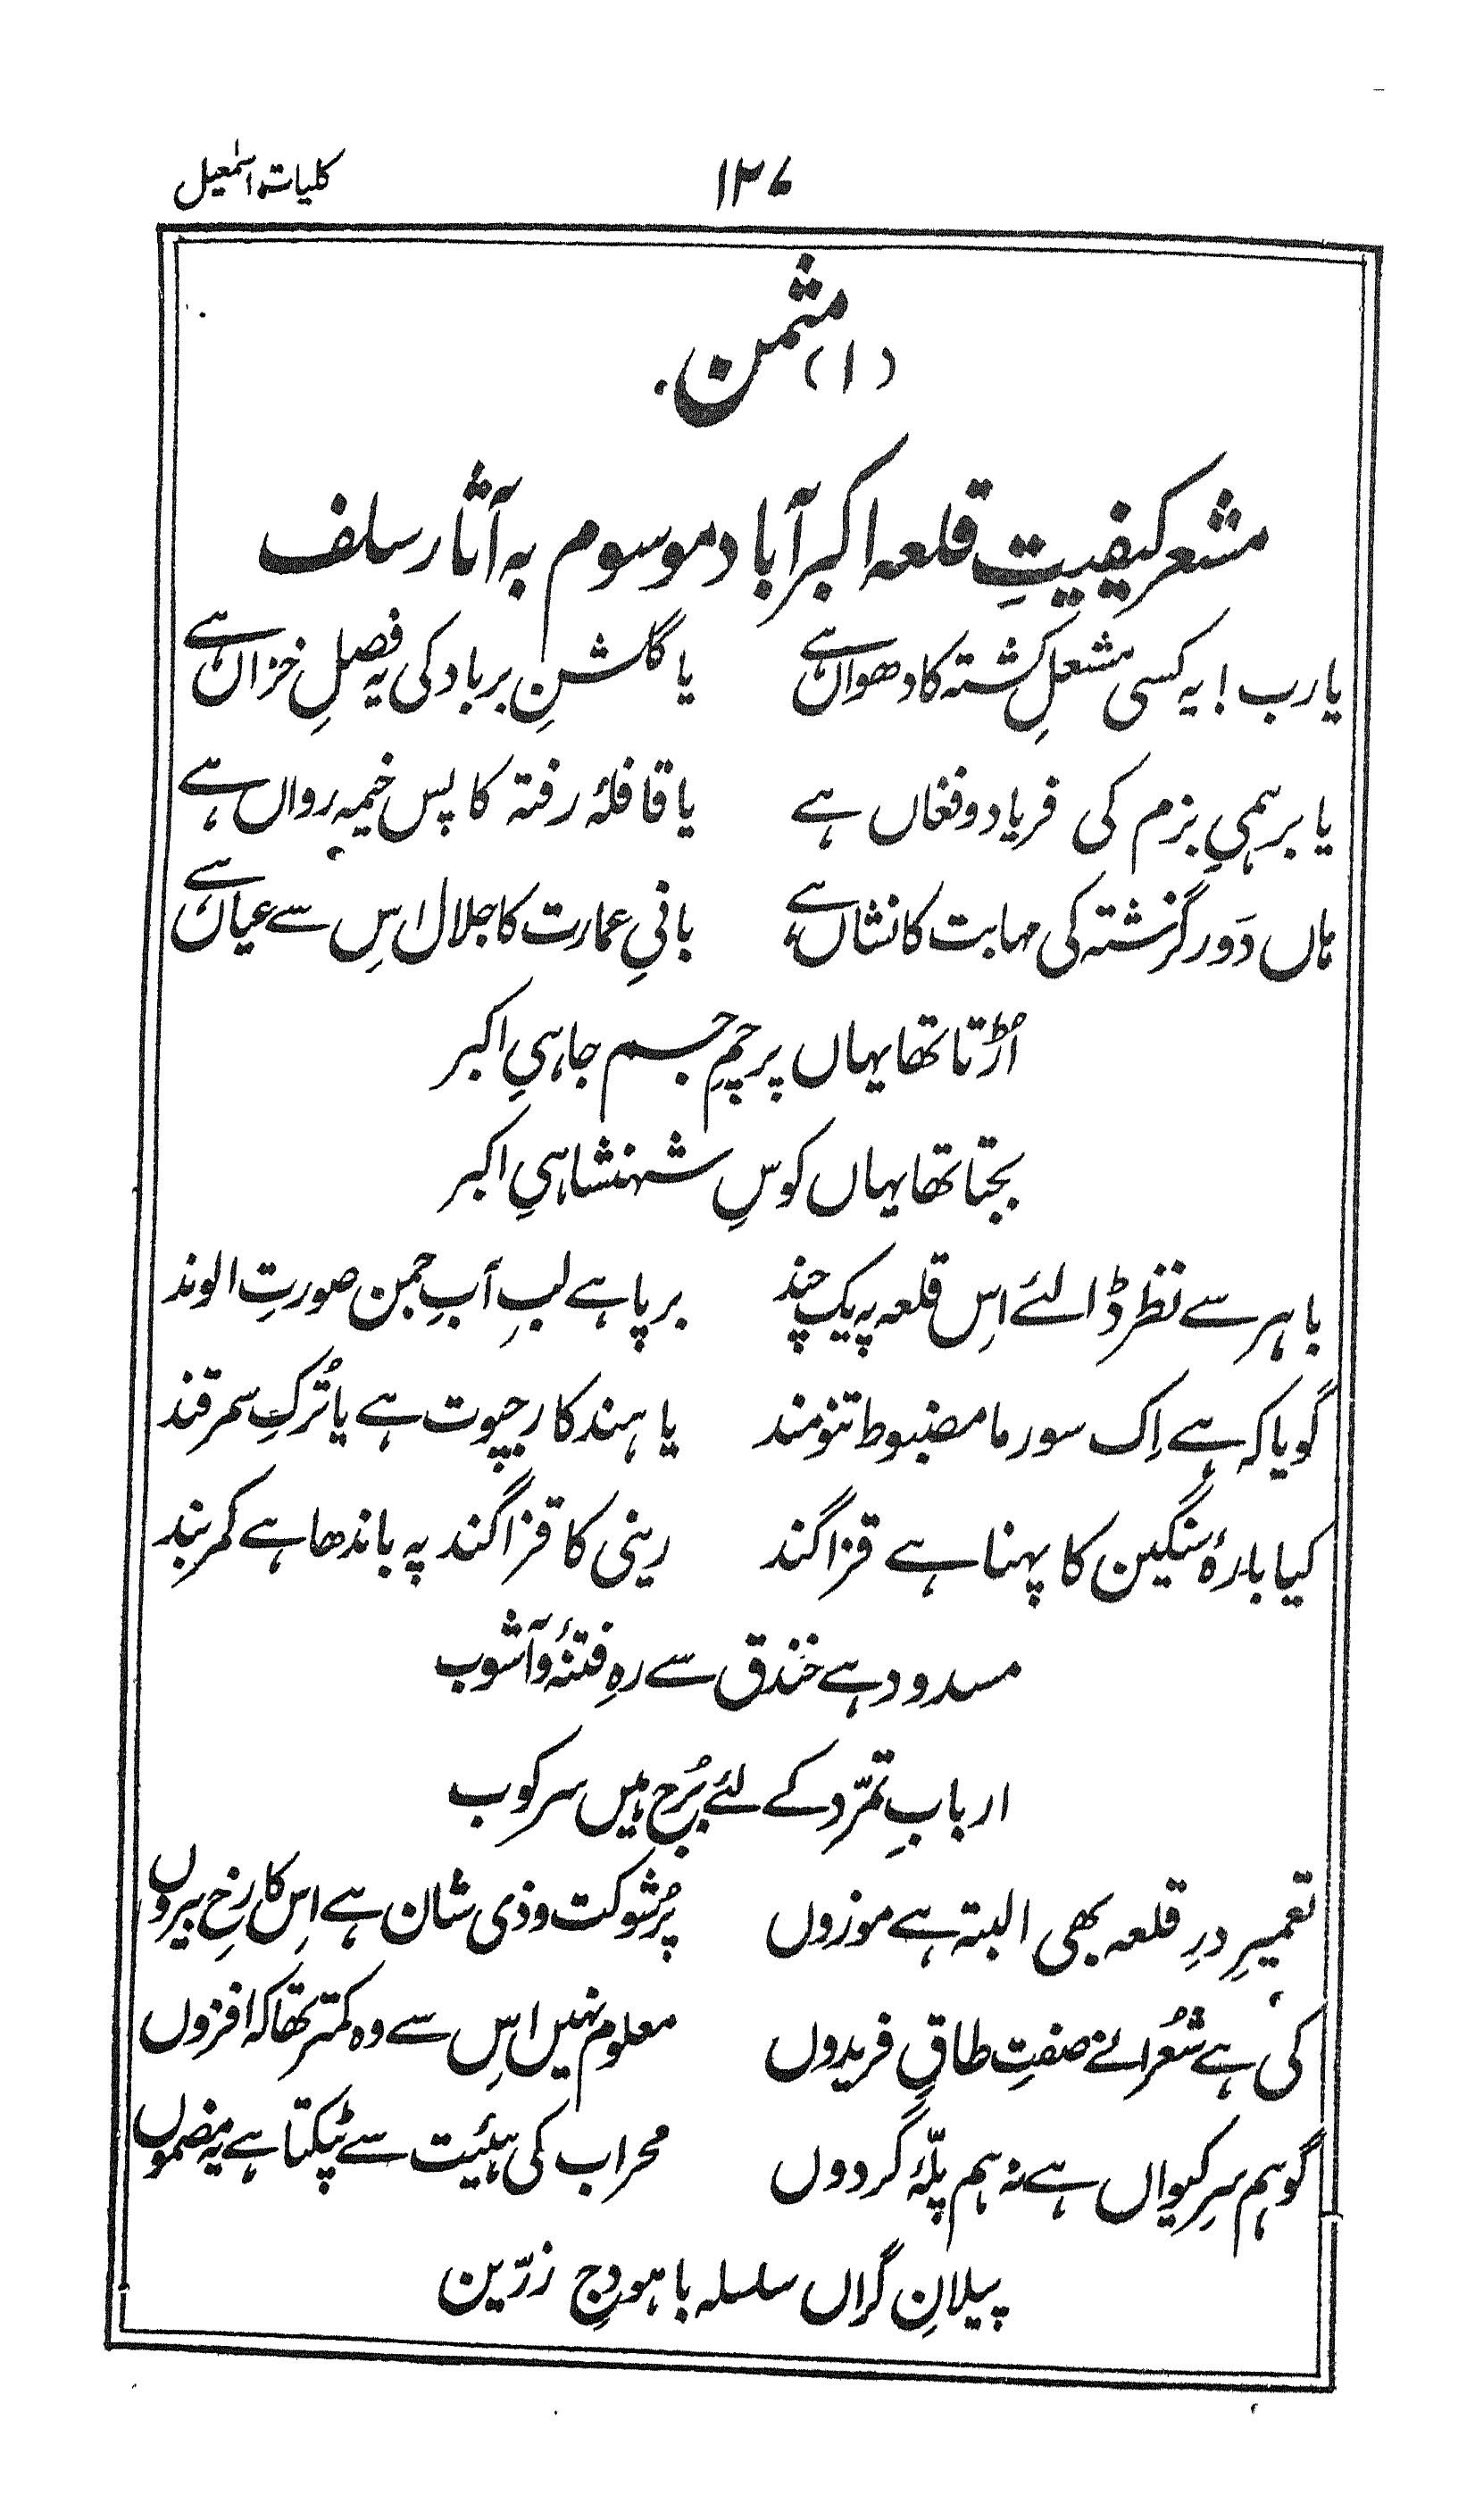 کلیات اسمٰعیل ۱۲۷
(۱) مثمن
مشعر کیفیتِ قلعہ اکبرآباد موسوم بہ آثار سلف
یارب! یہ کسی مشعلِ کشتہ کا دھواں ہے یا گلشنِ برباد کی یہ فصلِ خزاں ہے
یا برہمیِ بزم کی فریاد و فغاں ہے یا قافلۂ رفتہ کا پس خیمہ رواں ہے
ہاں دَور گزشتہ کی مہابت کا نشاں ہے بانیِ عمارت کا جلال اِس سے عیاں ہے
اُڑتا تھا یہاں پرچمِ جم جاہیِ اکبر
بجتا تھا یہاں کوسِ شہنشاہیِ اکبر
باہر سے نظر ڈالئے اِس قلعہ پہ یک چند برپا ہے لبِ آبِ جمن صورتِ الوند
گویا کہ ہے اِک سورما مضبوط تنومند یا ہند کا رجپوت ہے یا تُرکِ سمرقند
کیا بارۂ سنگین کا پہنا ہے قزاگند رینی کا قزاگند پہ باندھا ہے کمربند
مسدود ہے خندق سے رہِ فتنۂ و آشوب
اربابِ تمرّد کے لئے بُرج ہیں سرکوب
تعمیرِ درِ قلعہ بھی البتہ ہے موزوں پُرشوکت و ذی شان ہے اِس کا رخِ بیروں
کی ہے شُعَرا نے صفتِ طاقِ فریدوں معلوم نہیں اِس سے وہ کمتر تھا کہ افزوں
گو ہم سرِ کیواں ہے نہ ہم پلّۂ گردوں محراب کی ہیئت سے ٹپکتا ہے یہ مضموں
پیلانِ گراں سلسلہ با ہودجِ زرّین